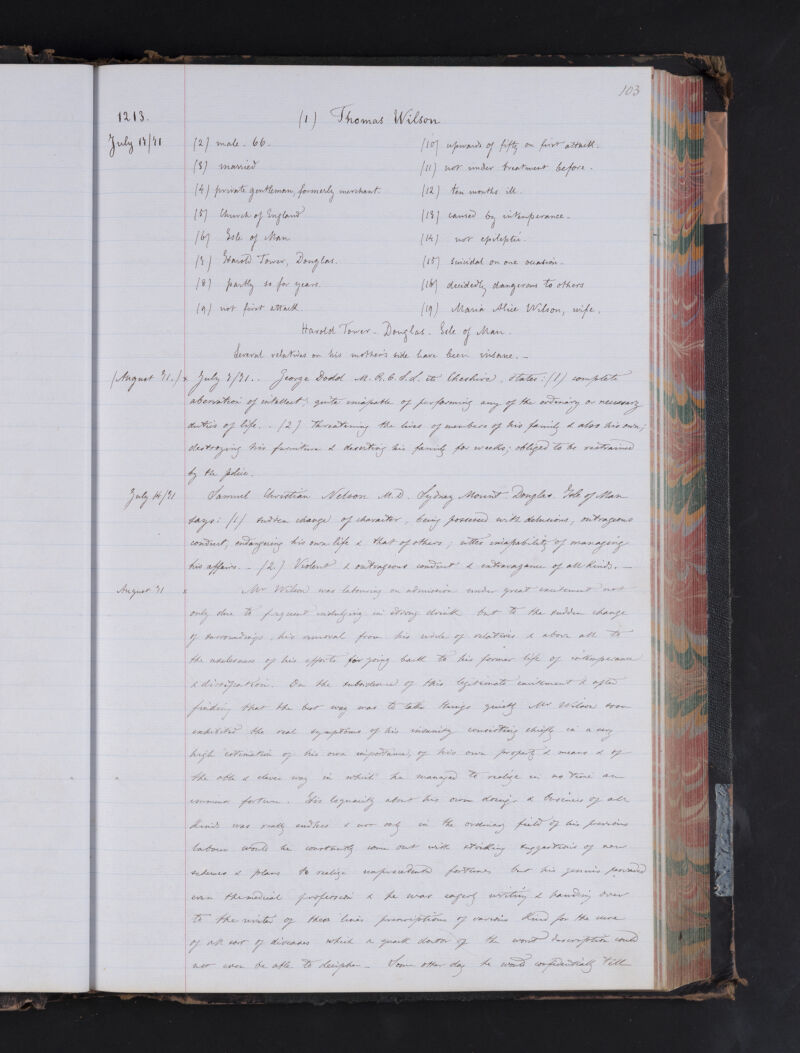 103
1213. (1) Thomas Wilson
July 17/71 (2) male. 66. (10) upwards of fifty on first attack.
(3) married (11) not under treatment before.
(4) private gentleman, formerly merchant. (12) ten months ill.
(5) Church of England (13) caused by intemperance.
(6) Isle of Man (14) not epileptic.
(7) Harold Tower, Douglas. (15) suicidal on one occasion.
(8) partly so for years. (16) decidedly dangerous to others
(9) not first attack. (17) Maria Alice Wilson, wife.
Harold Tower. Douglas. Isle of Man.
Several relatives on his mother's side have been insane. -
(August 31.) x July 3/71.. George Dodd M.R.C.S.L. Cheshire, states: (1) complete
aberration of intellect; quite incapable of performing any of the ordinary or necessary
duties of life. - (2) threatening the lives of members of his family & also his own;
destroying his furniture & deserting his family for weeks; obliged to be restrained
by the police.
July 14/71 Samuel Christian Nelson M.D. Sydney Mount Douglas Isle of Man
says: (1) sudden change of character, being possessed with delusions, outrageous
conduct, endangering his own life & that of others; utter incapability of managing
his affairs. - (2.) Violent & outrageous conduct & extravagance of all kinds. -
August 31 x Mr Wilson was labouring on admission under great excitement not
only due to frequent indulging in strong drink but to the sudden change
of surroundings, his removal from his circle of relatives & above all to
the uselessness of his efforts for going back to his former life of intemperance
& dissipation. On the subsidence of this legitimate excitement & after
finding that the best way was to take things quietly Mr Wilson soon
exhibited the real symptoms of his insanity consisting chiefly in a very
high estimation of his own importance, of his own property & means & of
the able & clever way in which he managed to realize in no time an
immense fortune. His loquacity about his own doings & business of all
kinds was really endless & not only in the ordinary field of his previous
labour would he constantly come out with striking suggestions of new
schemes & plans to realize unprecedented fortunes but his genius pervaded
even the medical profession & he was eagerly writing & handing over
to the writer of these lines prescriptions of various kind for the cure
of all sort of diseases which a quack doctor of the worst description could
not even be able to decipher - Some other day he would confidentially tell